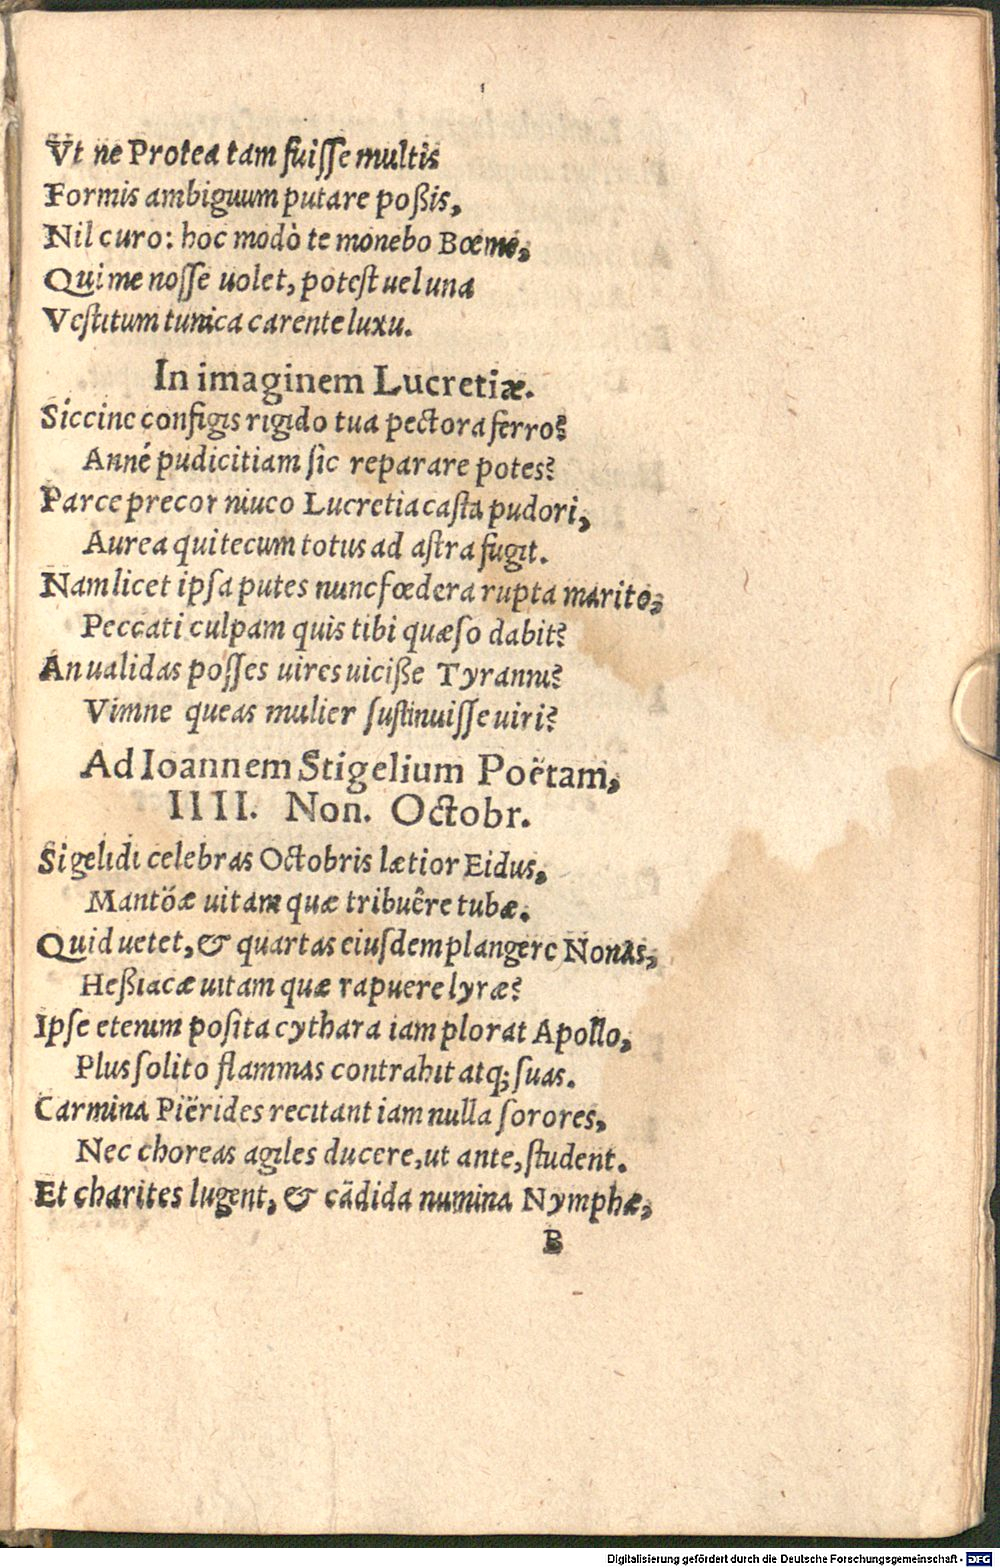 Vt ne Protea tam fuiſſe multis
Formis ambiguum putare poßis,
Nil curo: hoc modò te monebo Bœme,
Qui me noſſe uolet, poteſt uel una
Veſtitum tunica carente luxu.
In imaginem Lucretiæ.
Siccine configis rigido tua pectora ferro?
Anné pudicitiam ſic reparare potes?
Parce precor niueo Lucretia caſta pudori,
Aurea qui tecum totus ad aſtra fugit.
Nam licet ipſa putes nunc fœdera rupta marito,
Peccati culpam quis tibi quæſo dabit?
An ualidas poſſes uires uiciße Tyranni?
Vimne queas mulier ſuſtinuiſſe uiri?
Ad Ioannem Stigelium Poëtam,
IIII. Non. Octobr.
Sigelidi celebras Octobris lætior Eidus,
Mantöæ uitam quæ tribuêre tubæ.
Quid uetet, & quartas eiuſdem plangere Nonas,
Heßiacæ uitam quæ rapuere lyræ?
Ipſe etenim poſita cythara iam plorat Apollo,
Plus ſolito flammas contrahit atq; ſuas.
Carmina Piërides recitant iam nulla ſorores,
Nec choreas agiles ducere, ut ante, ſtudent.
Et charites lugent, & cãdida numina Nymphæ,
B
Digitalisierung gefördert durch die Deutsche Forschungsgemeinschaft - DFG